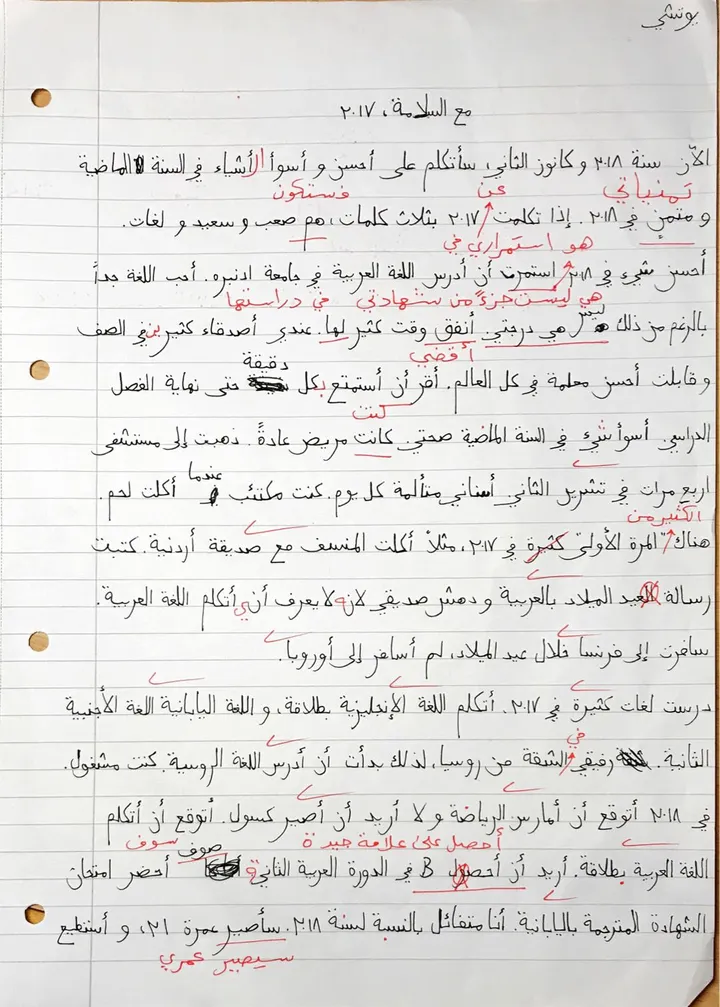 يوتشي
مع السلامة، ٢٠١٧
الآن سنة ٢٠١٨ و كانون الثاني، سأتكلم على أحسن و أسوأ الأشياء في السنة الماضية
تمنياتي عن فستكون
و متمن في ٢٠١٨. إذا تكلمت ٢٠١٧ بثلاث كلمات، هم صعب و سعيد و لغات.
هو استمراري في
أحسن شيء في ٢٠١٨ استمرت أن أدرس اللغة العربية في جامعة ادنبره. أحب اللغة جداً
هي ليست جزءً من شهادتي في دراستها
بالرغم من ذلك ليس هي درجتي. أنفق وقت كثير لها. عندي أصدقاء كثيرين في الصف
أقضي دقيقة
و قابلت أحسن معلمة في كل العالم. أقر أن أستمتع بكل حتى نهاية الفصل
كنت
الدراسي. أسوأ شيء في السنة الماضية صحتي. كانت مريض عادةً. ذهبت إلى مستشفى
عندما
اربع مرات في تشرين الثاني. أسناني متألمة كل يوم. كنت مكتئب أكلت لحم.
الكثير من
هناك المرة الأولى كثيرة في ٢٠١٧، مثلاً أكلت المنسف مع صديقة أردنية. كتبت
رسالة العيد الميلاد بالعربية و دهش صديقي لانه لا يعرف أني أتكلم اللغة العربية.
سافرت إلى فرنسا خلال عيد الميلاد، لم أسافر إلى أوروبا.
درست لغات كثيرة في ٢٠١٧. أتكلم اللغة الإنجليزية بطلاقة، و اللغة اليابانية اللغة الأجنبية
في
الثانية. رفيقي الشقة من روسيا، لذلك بدأت أن أدرس اللغة الروسية. كنت مشغول.
في ٢٠١٨ أتوقع أن أمارس الرياضة و لا أريد أن أصير كسول. أتوقع أن أتكلم
أحصل على علامة جيدة صوف سوف
اللغة العربية بطلاقة. أريد أن أحصل B في الدورة العربية الثانية أحضر امتحان
الشهادة المترجمة باليابانية. أنا متفائل بالنسبة لسنة ٢٠١٨. سأصير عمرة ٢١، و أستطيع
سيصبير عمري